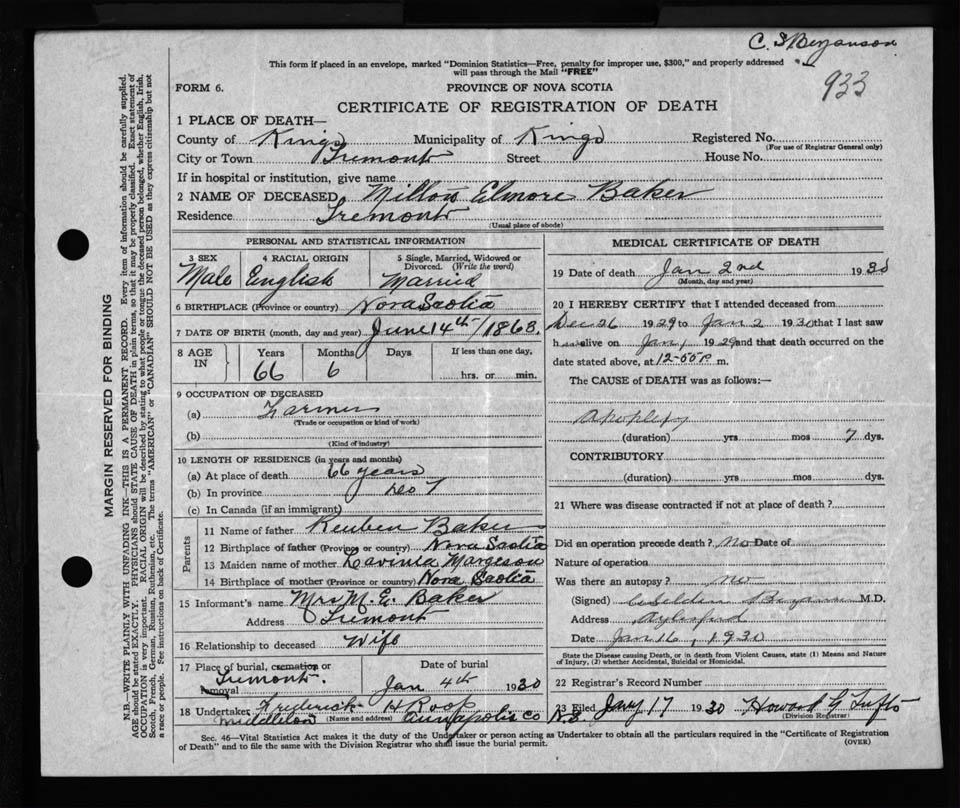 C. S. Bezanson
933
This form if placed in an envelope, marked "Dominion Statistics—Free, penalty for improper use, $300," and properly addressed
will pass through the Mail "FREE"
FORM 6.
PROVINCE OF NOVA SCOTIA
CERTIFICATE OF REGISTRATION OF DEATH
1 PLACE OF DEATH—
County of Kings Municipality of Kings Registered No.
(For use of Registrar General only)
City or Town Tremont Street House No.
If in hospital or institution, give name
2 NAME OF DECEASED Elmore Baker
Residence Tremont
(Usual place of abode)
PERSONAL AND STATISTICAL INFORMATION
3 SEX 4 RACIAL ORIGIN 5 Single, Married, Widowed or
Divorced. (Write the word)
Male English Married
6 BIRTHPLACE (Province or country) Nova Scotia
7 DATE OF BIRTH (month, day and year) June 14th/1863.
8 AGE IN Years Months Days If less than one day,
66 6 hrs. or min.
9 OCCUPATION OF DECEASED
(a) Farmer
(Trade or occupation or kind of work)
(b)
(Kind of industry)
10 LENGTH OF RESIDENCE (in years and months)
(a) At place of death 66 years
(b) In province
(c) In Canada (if an immigrant)
Parents
11 Name of father Reuben Baker
12 Birthplace of father (Province or country) Nova Scotia
13 Maiden name of mother Lavinia Margeson
14 Birthplace of mother (Province or country) Nova Scotia
15 Informant's name Mrs M. E. Baker
Address Tremont
16 Relationship to deceased Wife
17 Place of burial, cremation or
removal Tremont.
Date of burial
Jan 4th 1930
18 Undertaker Frederick H Roop
Middleton (Name and address) Annapolis Co N.S.
MEDICAL CERTIFICATE OF DEATH
19 Date of death Jan 2nd 1930
(Month, day and year)
20 I HEREBY CERTIFY that I attended deceased from
Dec 26 1929 to Jan 2 1930 that I last saw
h alive on Jan 1 1929 and that death occurred on the
date stated above, at m.
The CAUSE of DEATH was as follows:—
Apoplexy
(duration) yrs mos 7 dys.
CONTRIBUTORY
(duration) yrs mos dys.
21 Where was disease contracted if not at place of death?
Did an operation precede death? no Date of
Nature of operation
Was there an autopsy? no
(Signed) M.D.
Address Aylesford
Date Jan 16, 1930
State the Disease causing Death, or in death from Violent Causes, state (1) Means and
Nature of Injury, (2) whether Accidental, Suicidal or Homicidal.
22 Registrar's Record Number
23 Filed Jany 17 1930 Howard G Tufts
(Division Registrar)
Sec. 46—Vital Statistics Act makes it the duty of the Undertaker or person acting as Undertaker to obtain all the particulars required in the "Certificate of Registration
of Death" and to file the same with the Division Registrar who shall issue the burial permit.
(OVER)
MARGIN RESERVED FOR BINDING
N.B.—WRITE PLAINLY WITH UNFADING INK—THIS IS A PERMANENT RECORD. Every item of information should be carefully supplied.
AGE should be stated EXACTLY. PHYSICIANS should STATE CAUSE OF DEATH in plain terms, so that it may be properly classified. Exact statement of
OCCUPATION is very important. RACIAL ORIGIN will be described by stating to what people or tongue the deceased person belonged, whether English, Irish,
Scotch, French, German, Russian, Ruthenian, etc. The terms "AMERICAN" or "CANADIAN" SHOULD NOT BE USED as they express citizenship but not
a race or people. See instructions on back of Certificate.